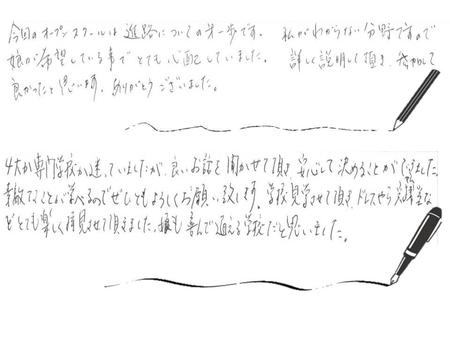 今回のオープンスクールは進路についての第一歩です。 私がわからない分野ですので
娘が希望している事でとても心配していました。 詳しく説明して頂き、参加して
良かったと思います。ありがとうございました。
4大か専門学校か迷っていましたが、良いお話を聞かせて頂き、安心して決めることができました。
素敵なことが学べるのでぜひともよろしくお願い致します。学校見学させて頂き、ドレスやら
どとても楽しく拝見させて頂きました。娘も喜んで通える学校だと思いました。